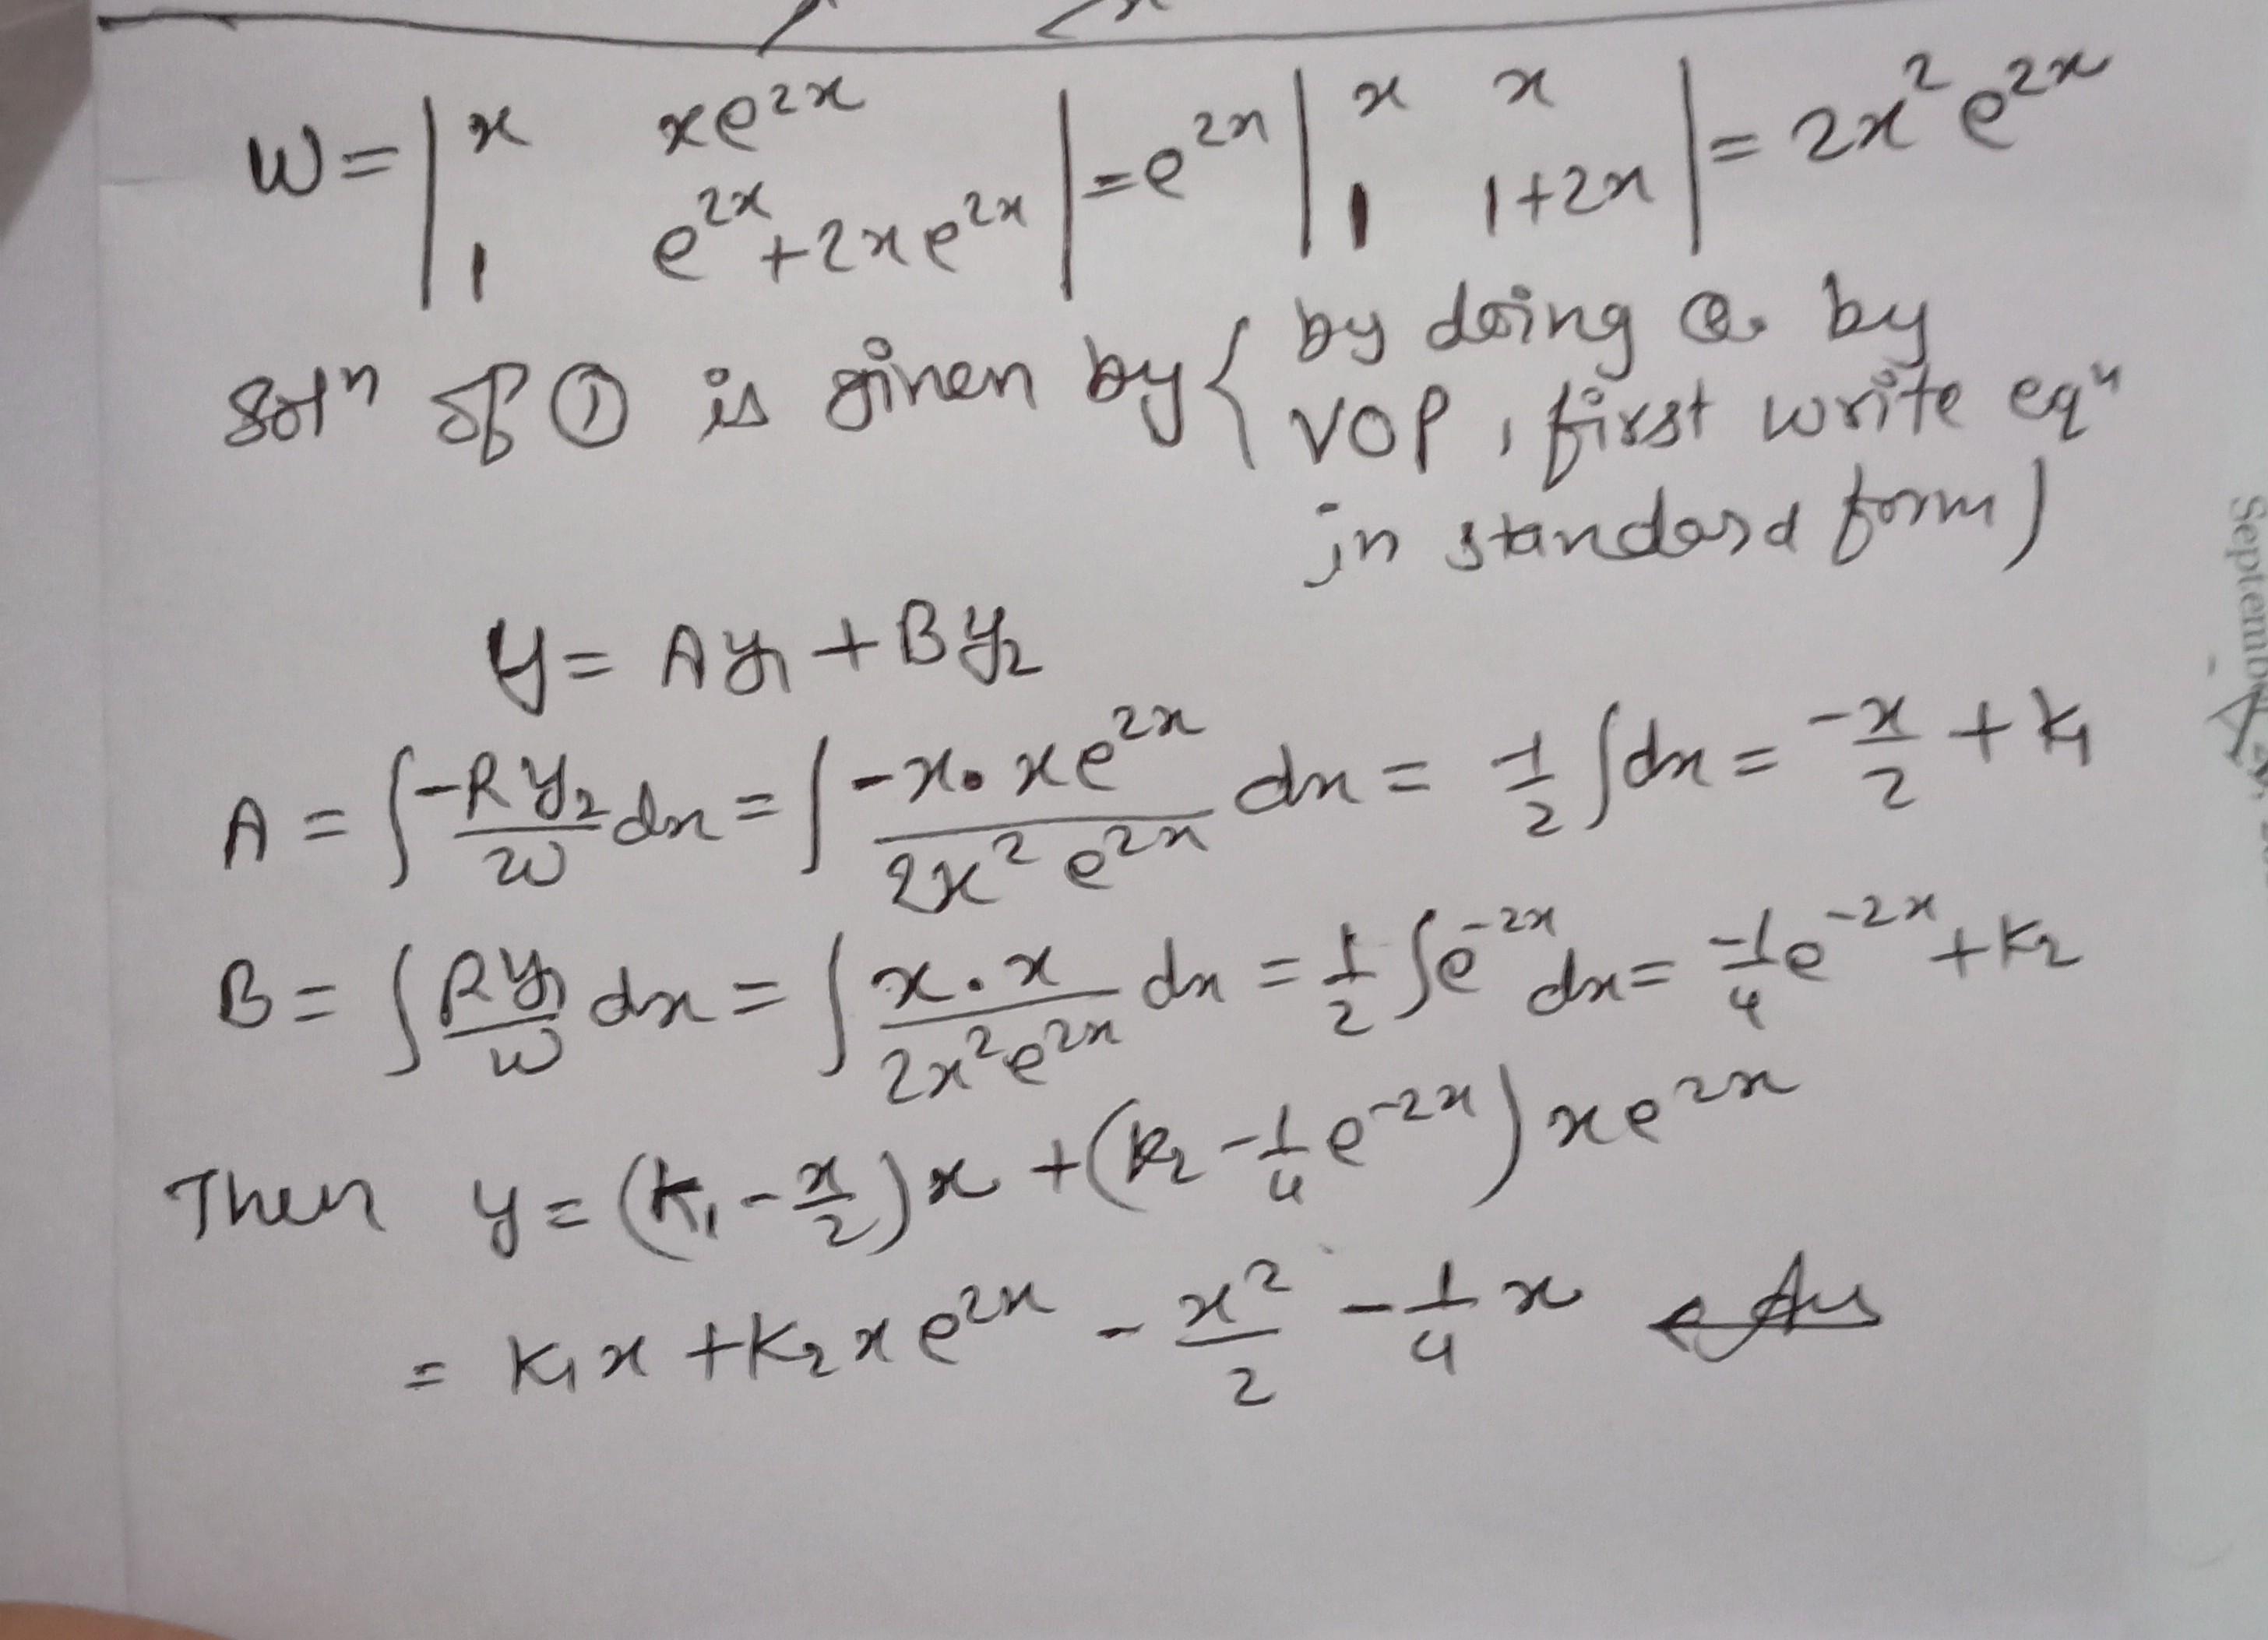 W = | x xe^{2x} ; 1 e^{2x}+2xe^{2x} | = e^{2x} | x x ; 1 1+2x | = 2x^2 e^{2x}
Sol^n of ① is given by { by doing Q. by
VOP, first write eq^n
in standard form)
y = Ay_1 + By_2
A = ∫ -Ry_2/W dx = ∫ -x·xe^{2x}/2x^2 e^{2x} dx = -1/2 ∫dx = -x/2 + k_1
B = ∫ Ry_1/W dx = ∫ x·x/2x^2e^{2x} dx = 1/2 ∫e^{-2x} dx = -1/4 e^{-2x} + k_2
Then y = (k_1 - x/2)x + (k_2 - 1/4 e^{-2x}) xe^{2x}
= k_1x + k_2xe^{2x} - x^2/2 - 1/4 x Ans